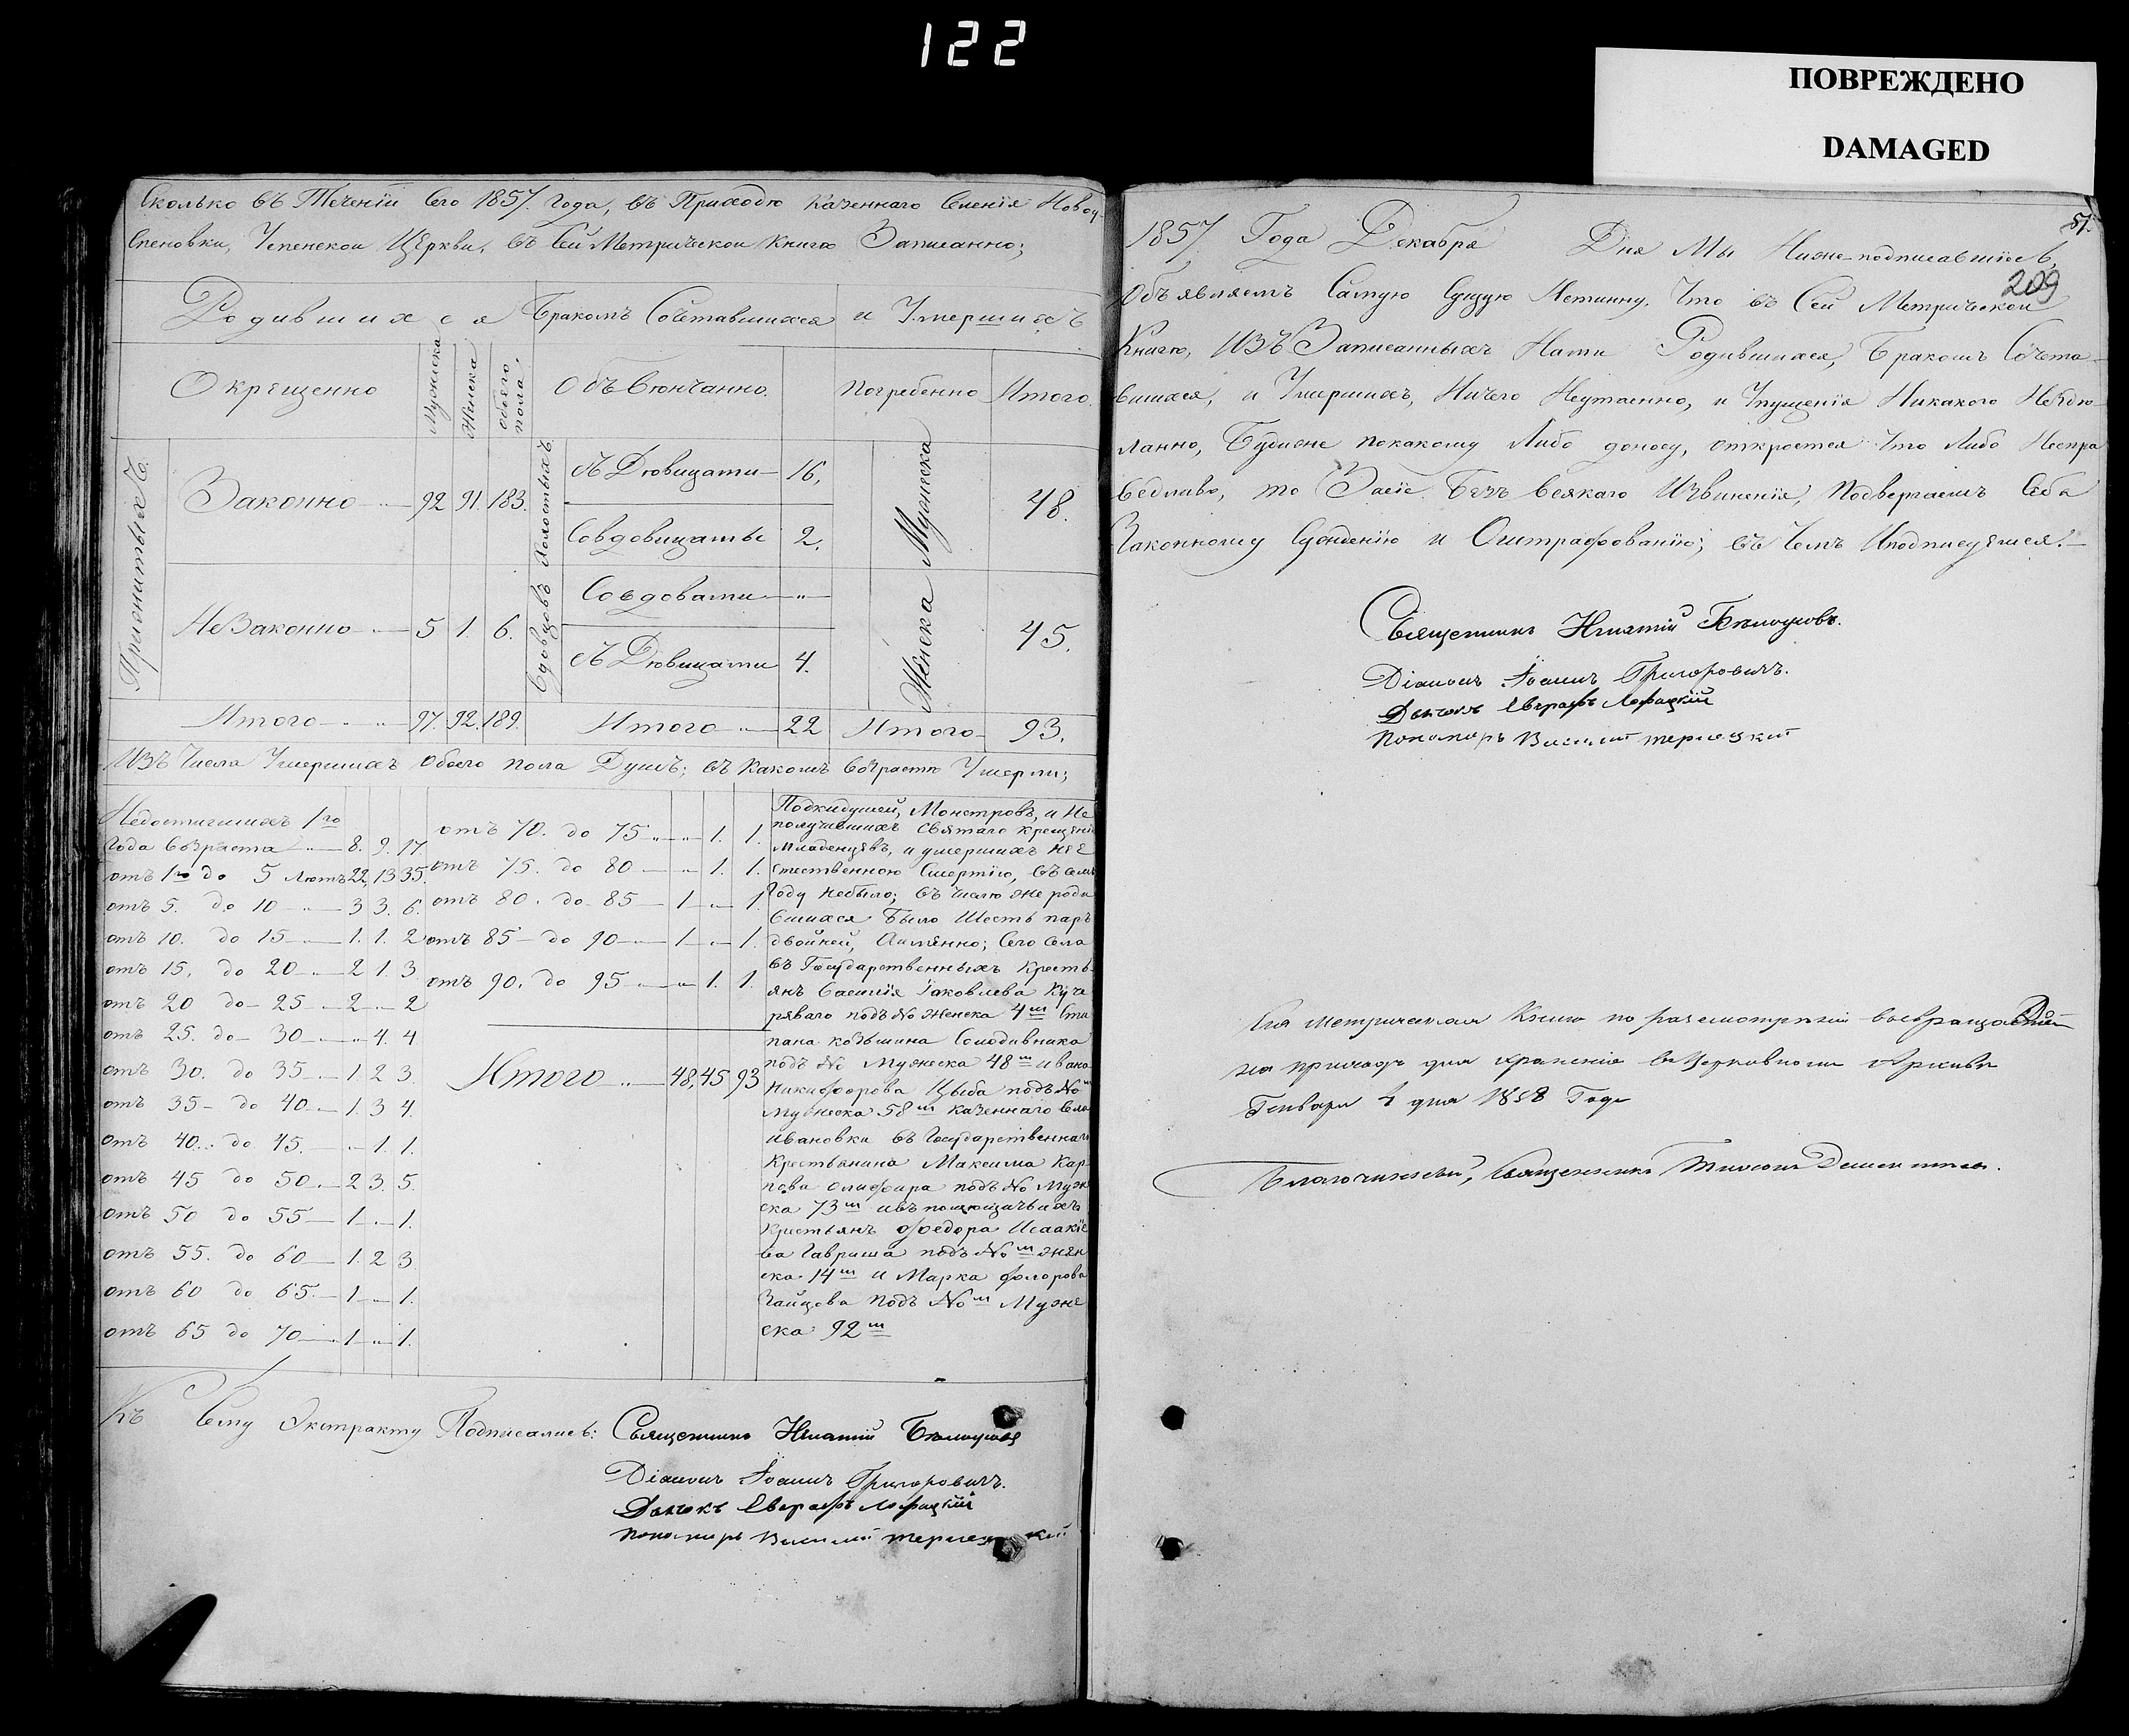 122
ПОВРЕЖДЕНО
DAMAGED
Сколько въ Теченіи Сего 1857. Года, въ Приходѣ Казеннаго Селенія Новоу
спеновки, Успенской Церкви, въ Сей Метрической Книгѣ Записанно;
Родившихся Бракомъ Сочетавшихся и Умершихъ
Окрещенно Мужеска Женска обоего пола Объ Вѣнчанно. Погребенно Итого.
Прижонитыхъ Холостыхъ Вдовцовъ Мужеска Женска
Законно 92 91. 183. съ Дѣвицами 16. 48.
Совдовицамы 2.
НеЗаконно 5 1. 6. Совдовами „ 45.
съ Дѣвицами 4.
Итого 97. 92. 189. Итого 22 Итого 93.
Изъ Числа Умершихъ Обоего пола Душъ; въ Какомъ Возрастѣ Умерли;
Недостигшихъ 1го
Года Возраста 8. 9. 17.
отъ 1го до 5 Лѣтъ 22, 13 35.
отъ 5. до 10 3 3. 6.
отъ 10. до 15 1. 1. 2
отъ 15. до 20 2 1. 3
отъ 20 до 25 2 „ 2
отъ 25. до 30 „ 4. 4
отъ 30. до 35 1. 2 3.
отъ 35 до 40 1. 3 4.
отъ 40. до 45. „ 1. 1.
отъ 45 до 50. 2 3. 5.
отъ 50 до 55 1 „ 1.
отъ 55. до 60 1. 2 3
отъ 60 до 65. 1 „ 1.
отъ 65 до 70 1 „ 1.
отъ 70. до 75 „ 1. 1.
отъ 75. до 80 „ 1. 1.
отъ 80. до 85 1 „ 1.
отъ 85 до 90 1 „ 1.
отъ 90. до 95 „ 1. 1.
Итого 48, 45 93
Подкидушей, Монстровъ, и Не
получившихъ Святаго крещенія
Младенцевъ, и умершихъ Не Е
стественною Смертію, въ семъ
Году небыло; въ числѣ же роди
вшихся Было Шесть паръ
двойней, Аименно; Сего села
въ Государственныхъ Кресть
янъ Василія Іаковлева Куче
ряваго подъ No Женска 4м Сте
пана козьмина Солодивника
подъ No Мужеска 48м ивана
Никифорова Цыба подъ No м
Мужеска 58м Казеннаго Села
ивановки въ Государственнаго
Крестьянина Максима Кар
пова Олифира подъ No Муже
ска 73м ивъ помѣщачьихъ
Крестьянъ Феодора Исаакіе
ва Гавриша подъ No м жен
ска 14м и Марка
Зайцева подъ No м Муже
ска 92м
Къ Сему Экстракту Подписались: Священникъ Игнатій Бѣлоусовъ
Діаконъ Іоаннъ Григоровичъ.
Дьячокъ Евграфъ Лофицкій
Пономарь Василій
51.
209
1857 Года Декабря Дня Мы Ниже подписавшіесѣ,
Объявляемъ Самую Сущую Истинну, Что въ Сей Метрической
Книгѣ, Изъ Записанныхъ Нами Родившихся, Бракомъ Сочета
вшихся, и Умершихъ, Ничего Неутаенно, и Упущенія Никакого Нездѣ
ланно, Будеже покакому Либо доносу, откроется Что Либо Неспра
ведливо, то Засіе Безъ Всякаго Извиненія, Подвергаемъ Себя
Законному Сужденію и Оштрафованію; въ Чемъ Иподписуемся.
Священникъ Игнатій Бѣлоусовъ.
Діаконъ Іоаннъ Григоровичъ.
Дьячокъ Евграфъ Лофицкій
Пономарь Василій
Сія Метрическая Книга по разсмотреніи возвращается
на приходъ для храненія въ Церковномъ Архивѣ
Генваря 4 дня 1858 Года
Благочинный, Священникъ